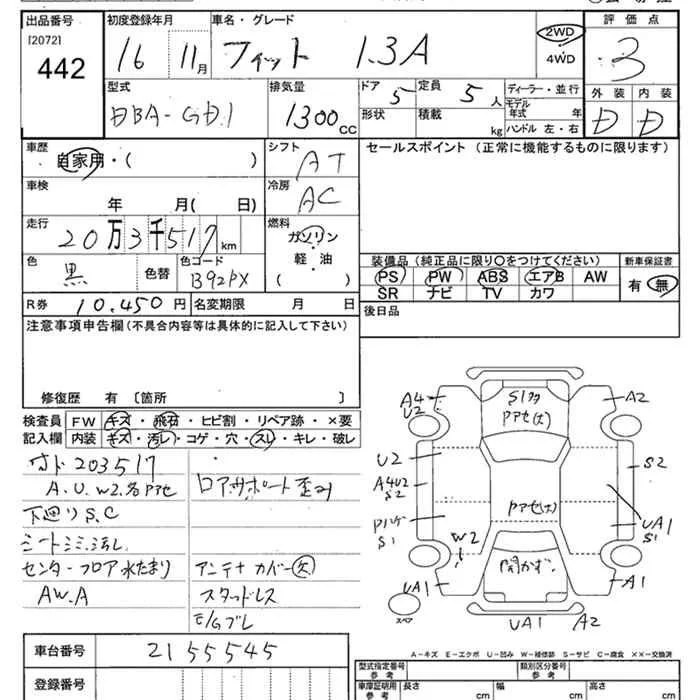 出品番号 初度登録年月 車名・グレード 評価点
[2072]
442 16 11月 フィット 1.3A 2WD 4WD 3
型式 排気量 ドア 定員 ディーラー・並行 外装 内装
DBA-GD1 1300 CC 5 5人 モデル年式 年 D D
形状 積載 kg ハンドル 左・右
車歴 シフト セールスポイント(正常に機能するものに限ります)
自家用・( ) AT
車検 冷房
年 月( 日) AC
走行 燃料
20万3千517km ガソリン・軽・油 ( )
色 色コード 装備品(純正品に限り○をつけてください) 新車保証書
黒 色替 B92PX PS PW ABS エアB AW 有・無
SR ナビ TV カワ
R券 10,450円 名変期限 月 日 後日品
注意事項申告欄(不具合内容等は具体的に記入して下さい)
修復歴 有 〔箇所 〕
検査員記入欄 FW キズ・飛石・ヒビ割・リペア跡・×要
内装 キズ・汚レ・コゲ・穴・スレ・キレ・破レ
203517
A.U.W2.各Pアセ
ロアサポート歪み
下廻りS.C
シートシミ、汚レ
センターフロア水たまり
アンテナカバー欠
AW.A
スタッドレス
E/Gブレ
A4 U2 S1 Pアセ(大) A2
U2 S2
A4U2 S2 Pアセ(大)
S1 W2 UA1 S1
UA1 開かず A1
スペア UA1 A2
A-キズ E-エクボ U-凹み W-補修跡 S-サビ C-腐食 ××-交換済
車台番号 2155545
登録番号
型式指定番号 参考 類別区分番号 参考
車庫証明用 参考 長さ cm 幅 cm 高さ cm